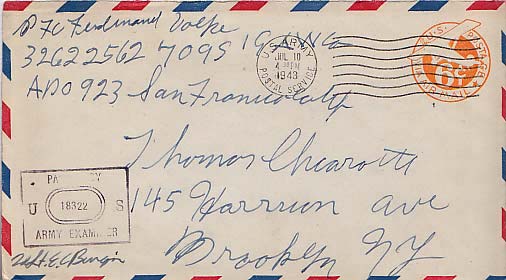 Pfc Ferdinand Volpe
32622562 709S
APO 923 San Francisco Calif
U.S. ARMY
JUL 10
1943
POSTAL SERVICE
U.S. POSTAGE
6¢
VIA AIR MAIL
Thomas
145 Harrison ave
Brooklyn NY
PASSED BY
U 18322 S
ARMY EXAMINER